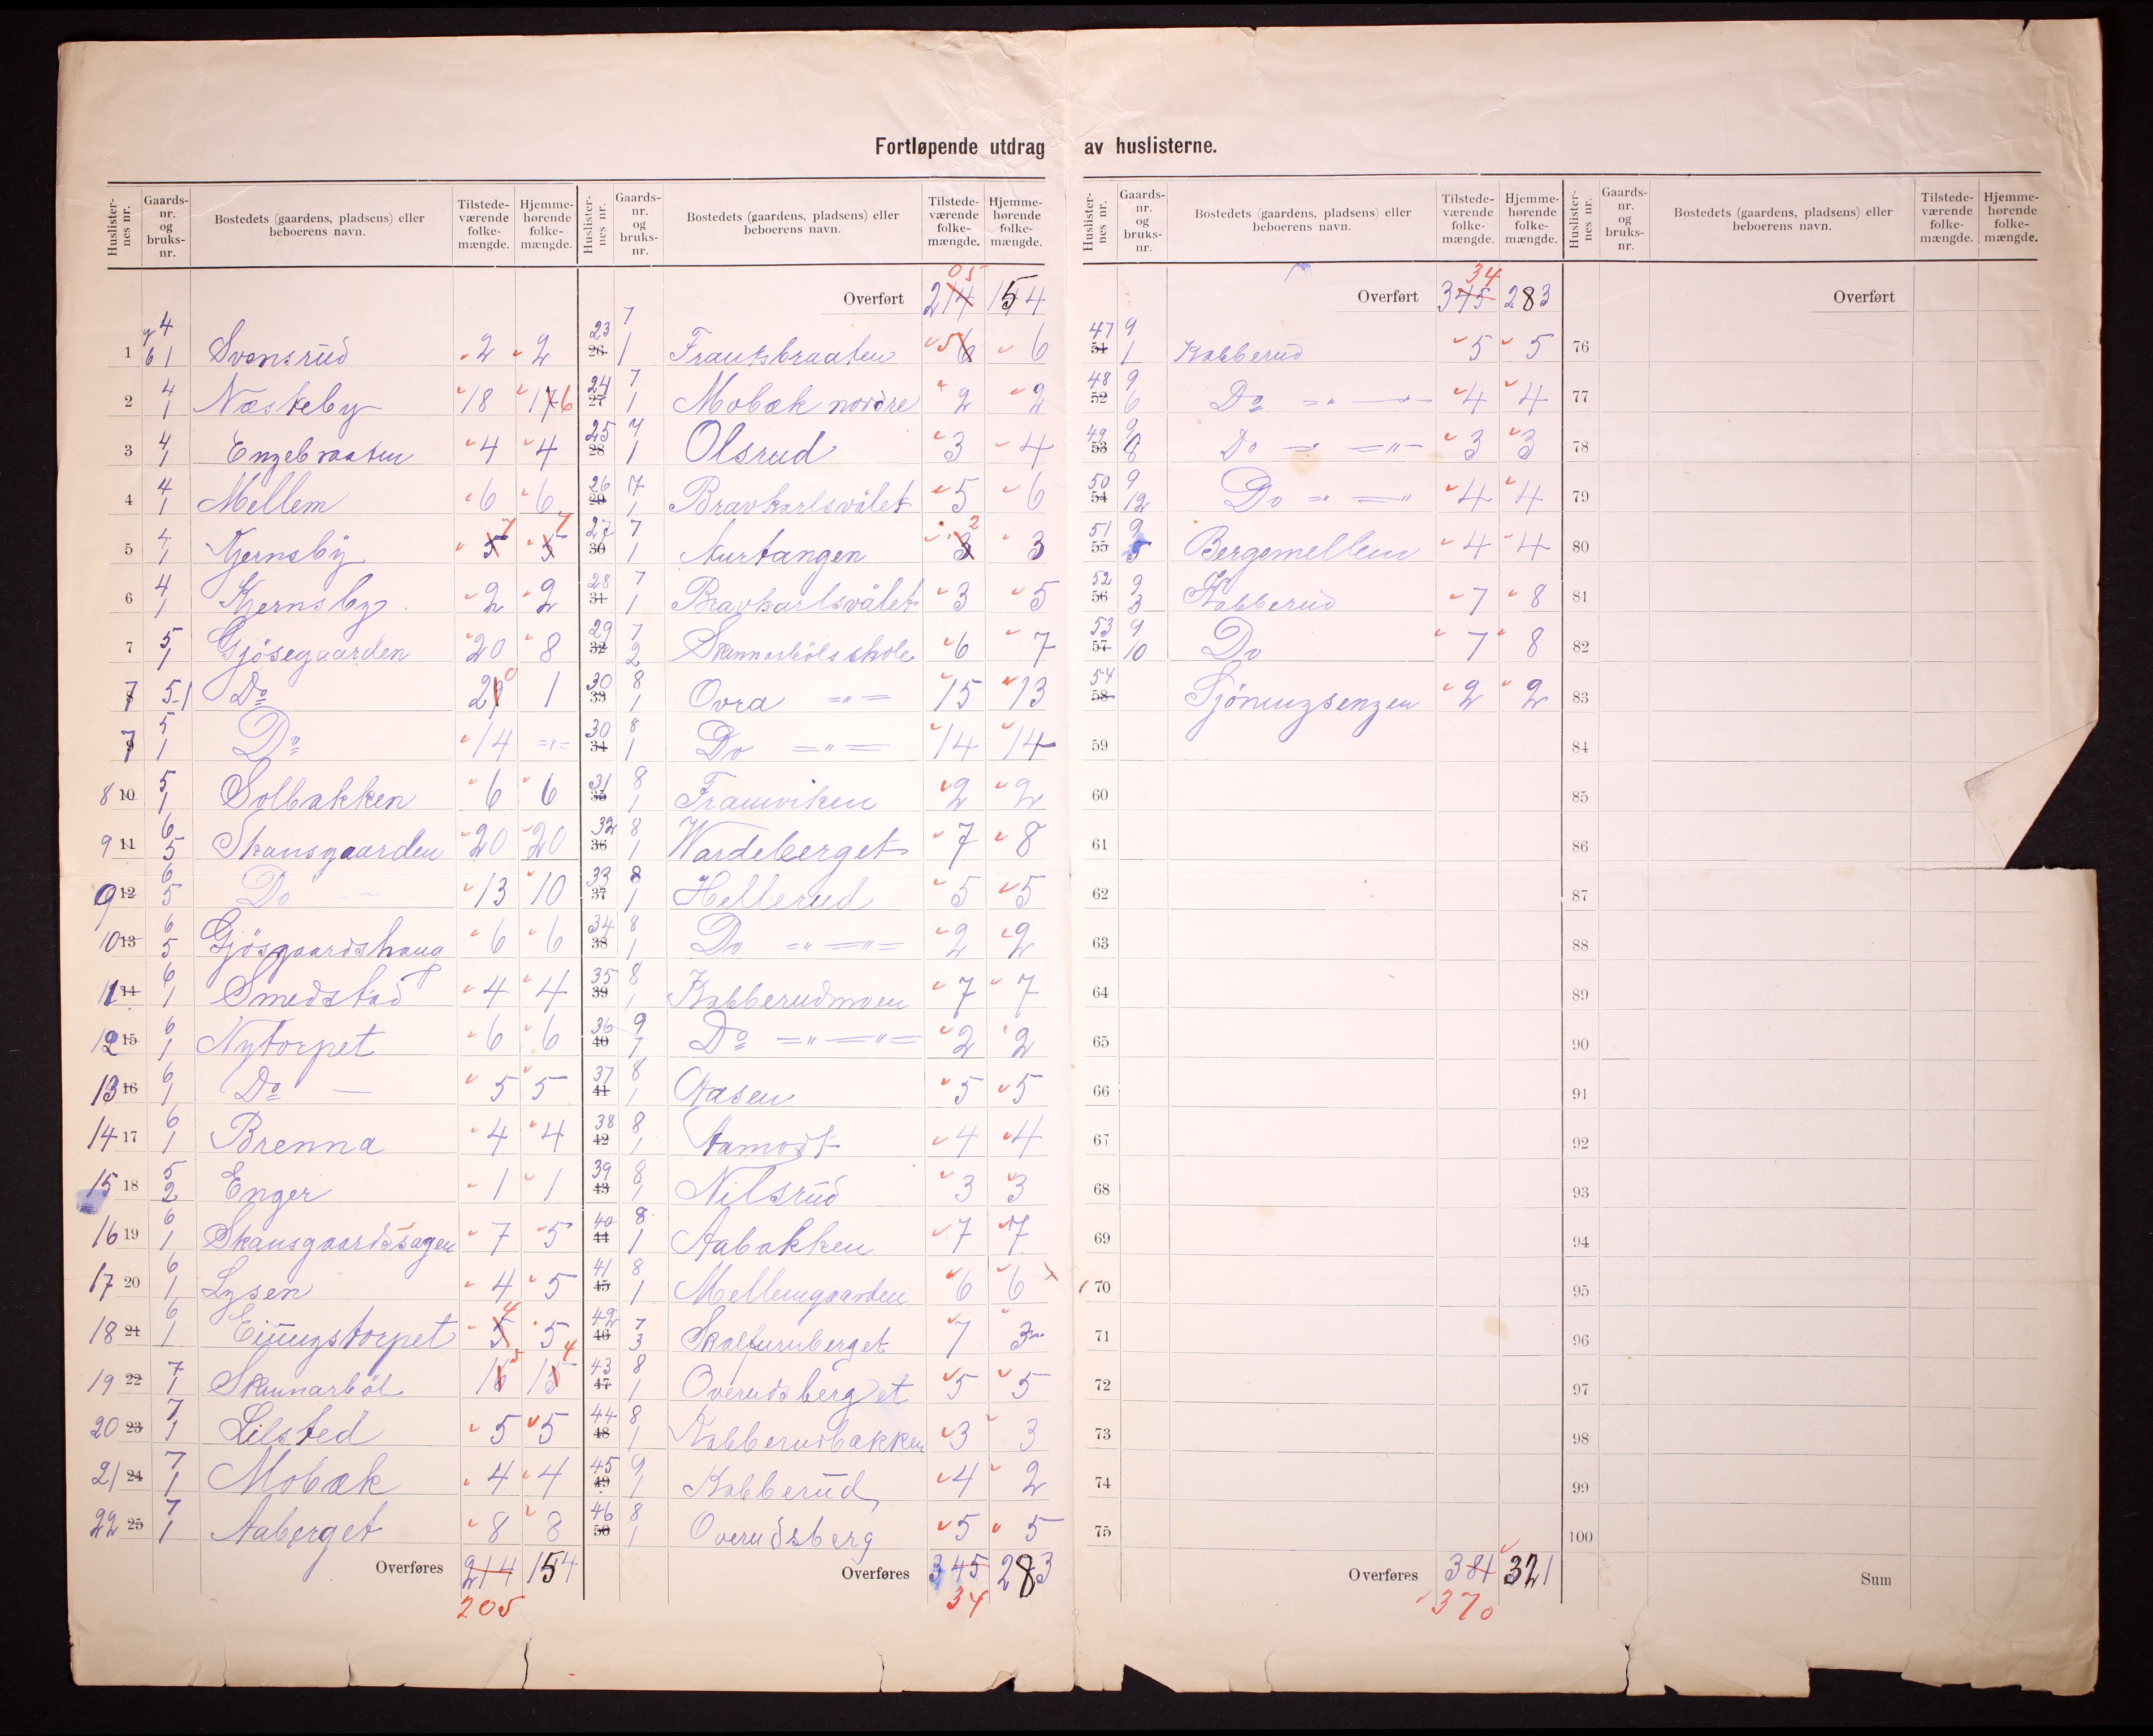 Fortløpende utdrag av huslisterne.
Huslisternes nr. Gaards-nr. og bruks-nr. Bostedets (gaardens, pladsens) eller beboerens navn. Tilstede-værende folke-mængde. Hjemme-hørende folke-mængde.
1 4 1 Svensrud 2 2
2 4 1 Næsteby 18 17 6
3 4 1 Engebraaten 4 4
4 4 1 Mellem 6 6
5 4 1 Kjernsby 5 7 5 7
6 4 1 Kjernsby 2 2
7 5 1 Gjösegaarden 20 8
7 8 5 1 Do 21 0 1
7 9 5 1 Do 14 =〃=
8 10 5 1 Solbakken 6 6
9 11 6 5 Skansgaarden 20 20
9 12 6 5 Do 13 10
10 13 6 5 Gjösgaardshaug 6 6
11 14 6 1 Smedstad 4 4
12 15 6 1 Nytorpet 6 6
13 16 6 1 Do — 5 5
14 17 6 1 Brenna 4 4
15 18 5 2 Enger 1 1
16 19 6 1 Skansgaardssagen 7 5
17 20 6 1 Lysen 4 5
18 21 6 1 5 4 5
19 22 7 1 Skannarböl 16 5 15 4
20 23 7 1 Lilsted 5 5
21 24 7 1 Mobæk 4 4
22 25 7 1 Aaberget 8 8
Overføres 214 154
205
Huslisternes nr. Gaards-nr. og bruks-nr. Bostedets (gaardens, pladsens) eller beboerens navn. Tilstede-værende folke-mængde. Hjemme-hørende folke-mængde.
Overført 214 05 154
23 26 7 1 Frantsbraaten 5 6 6
24 27 7 1 Mobæk nordre 2 2
25 28 7 1 Olsrud 3 4
26 29 7 1 Bravkarlsvålet 5 6
27 30 7 1 Aurtangen 3 2 3
28 31 7 1 Bravkarlsvålet 3 5
29 32 7 2 Skannarböls skole 6 7
30 33 8 1 Ovra =〃= 15 13
30 34 8 1 Do =〃= 14 14
31 35 8 1 Framviken 2 2
32 36 8 1 Wardeberget 7 8
33 37 8 1 Hellerud 5 5
34 38 8 1 Do =〃=〃= 2 2
35 39 8 1 Kabberudmoen 7 7
36 40 9 7 Do =〃=〃= 2 2
37 41 8 1 Aasen 5 5
38 42 8 1 Aamodt 4 4
39 43 8 1 Nilsrud 3 3
40 44 8 1 Aabakken 7 7
41 45 8 1 Mellemgaarden 6 6
42 46 7 3 Skalfuruberget 7 3
43 47 8 1 Overudsberget 5 5
44 48 8 1 Kabberudbakken 3 3
45 49 9 1 Kabberud 4 2
46 50 8 1 Overudsberg 5 5
Overføres 345 283
34
Huslisternes nr. Gaards-nr. og bruks-nr. Bostedets (gaardens, pladsens) eller beboerens navn. Tilstede-værende folke-mængde. Hjemme-hørende folke-mængde.
Overført 345 34 283
47 51 9 1 Kabberud 5 5
48 52 9 6 Do =〃= 4 4
49 53 9 8 Do =〃= 3 3
50 54 9 12 Do =〃= 4 4
51 55 9 5 Bergemellem 4 4
52 56 9 3 Kabberud 7 8
53 57 9 10 Do 7 8
54 58 Sjönugsengen 2 2
59
60
61
62
63
64
65
66
67
68
69
70
71
72
73
74
75
Overføres 384 321
370
Huslisternes nr. Gaards-nr. og bruks-nr. Bostedets (gaardens, pladsens) eller beboerens navn. Tilstede-værende folke-mængde. Hjemme-hørende folke-mængde.
Overført
76
77
78
79
80
81
82
83
84
85
86
87
88
89
90
91
92
93
94
95
96
97
98
99
100
Sum